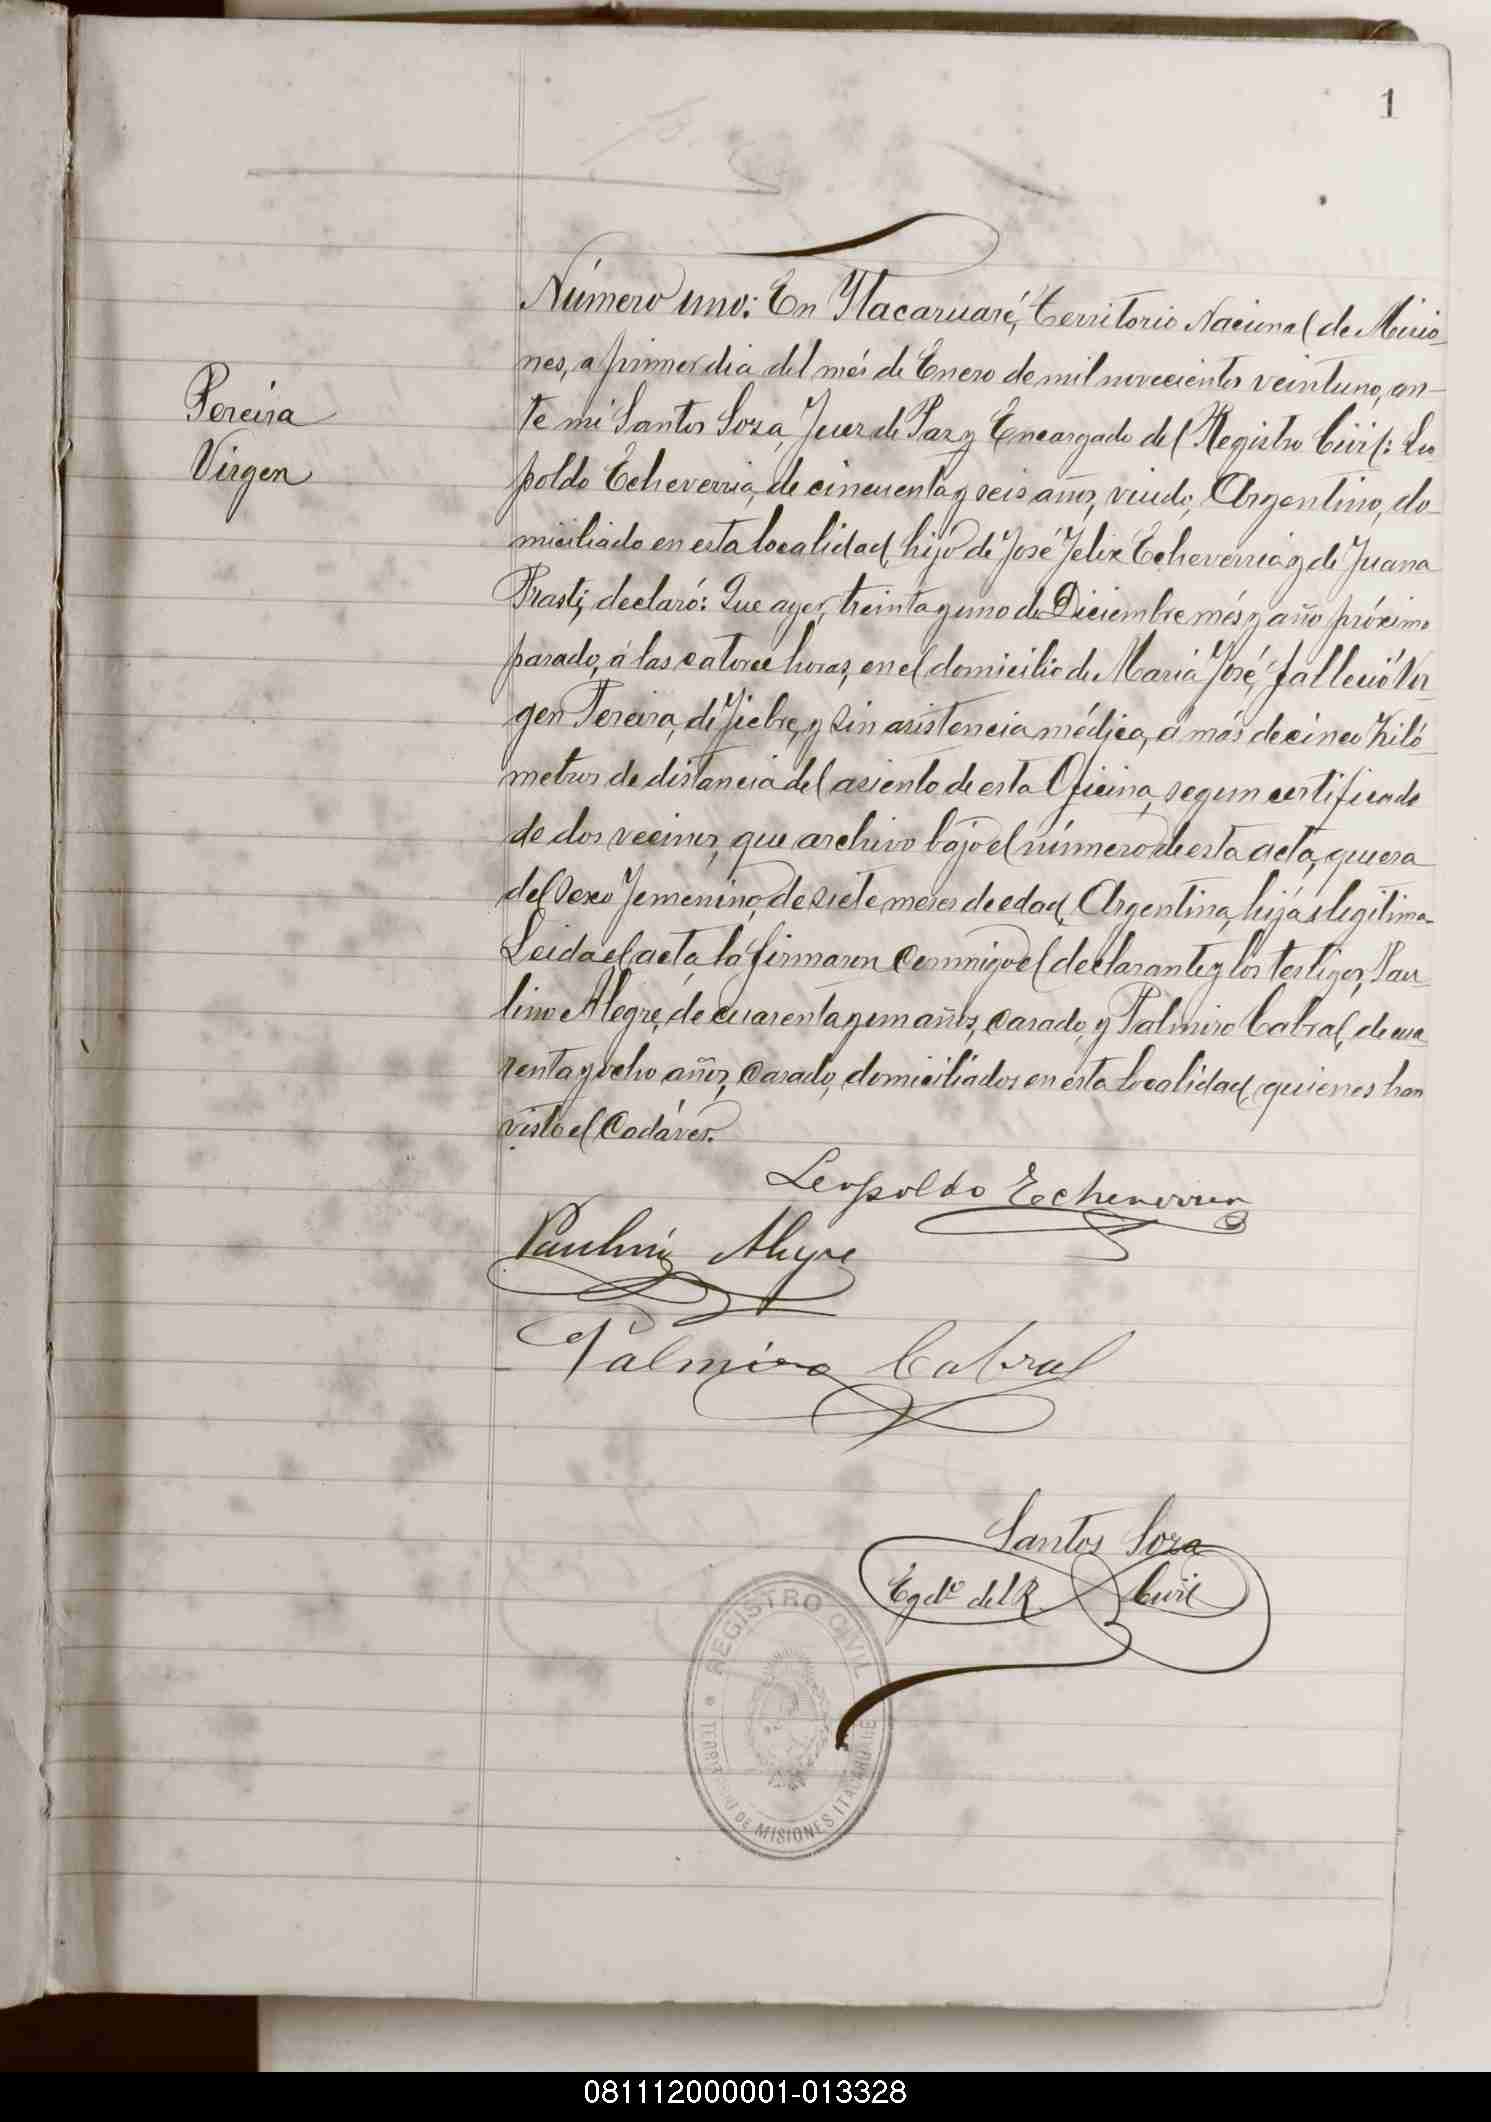 1
Número uno: En Ytacaruaré, Territorio Nacional de Misio-
nes, a primer dia del més de Enero de mil novecientos veintuno, an-
te mi Santos Soza, Juez de Paz y Encargado del Registro Civil: Leo-
poldo Echeverria, de cincuenta y seis años, viudo, Argentino, do-
miciliado en esta localidad, hijo de José Felix Echeverria y de Juana
Prasti, declaró: Que ayer, treinta y uno de Diciembre més y año próximo
pasado, á las catorce horas, en el domicilio de Maria José, falleció Vir-
gen Pereira, de fiebre, y sin asistencia médica, á más de cinco Kiló-
metros de distancia del asiento de esta Oficina, segun certificado
de dos vecinos, que archivo bajo el número de esta acta, que era
del sexo femenino, de siete meses de edad, Argentina, hija legitima
Leida el acta, la firmaron conmigo el declarante y los testigos, Pau-
lino Alegre, de cuarenta y un años, casado, y Palmiro Cabral, de cua-
renta y ocho años, casado, domiciliados en esta localidad, quienes han
visto el Cadáver.
Pereira
Virgen
Leopoldo Echeverria
Paulino Alegre
Palmiro Cabral
Santos Soza
Egdo del R. Civil
REGISTRO CIVIL
TERRITORIO DE MISIONES ITACARUARE
081112000001-013328